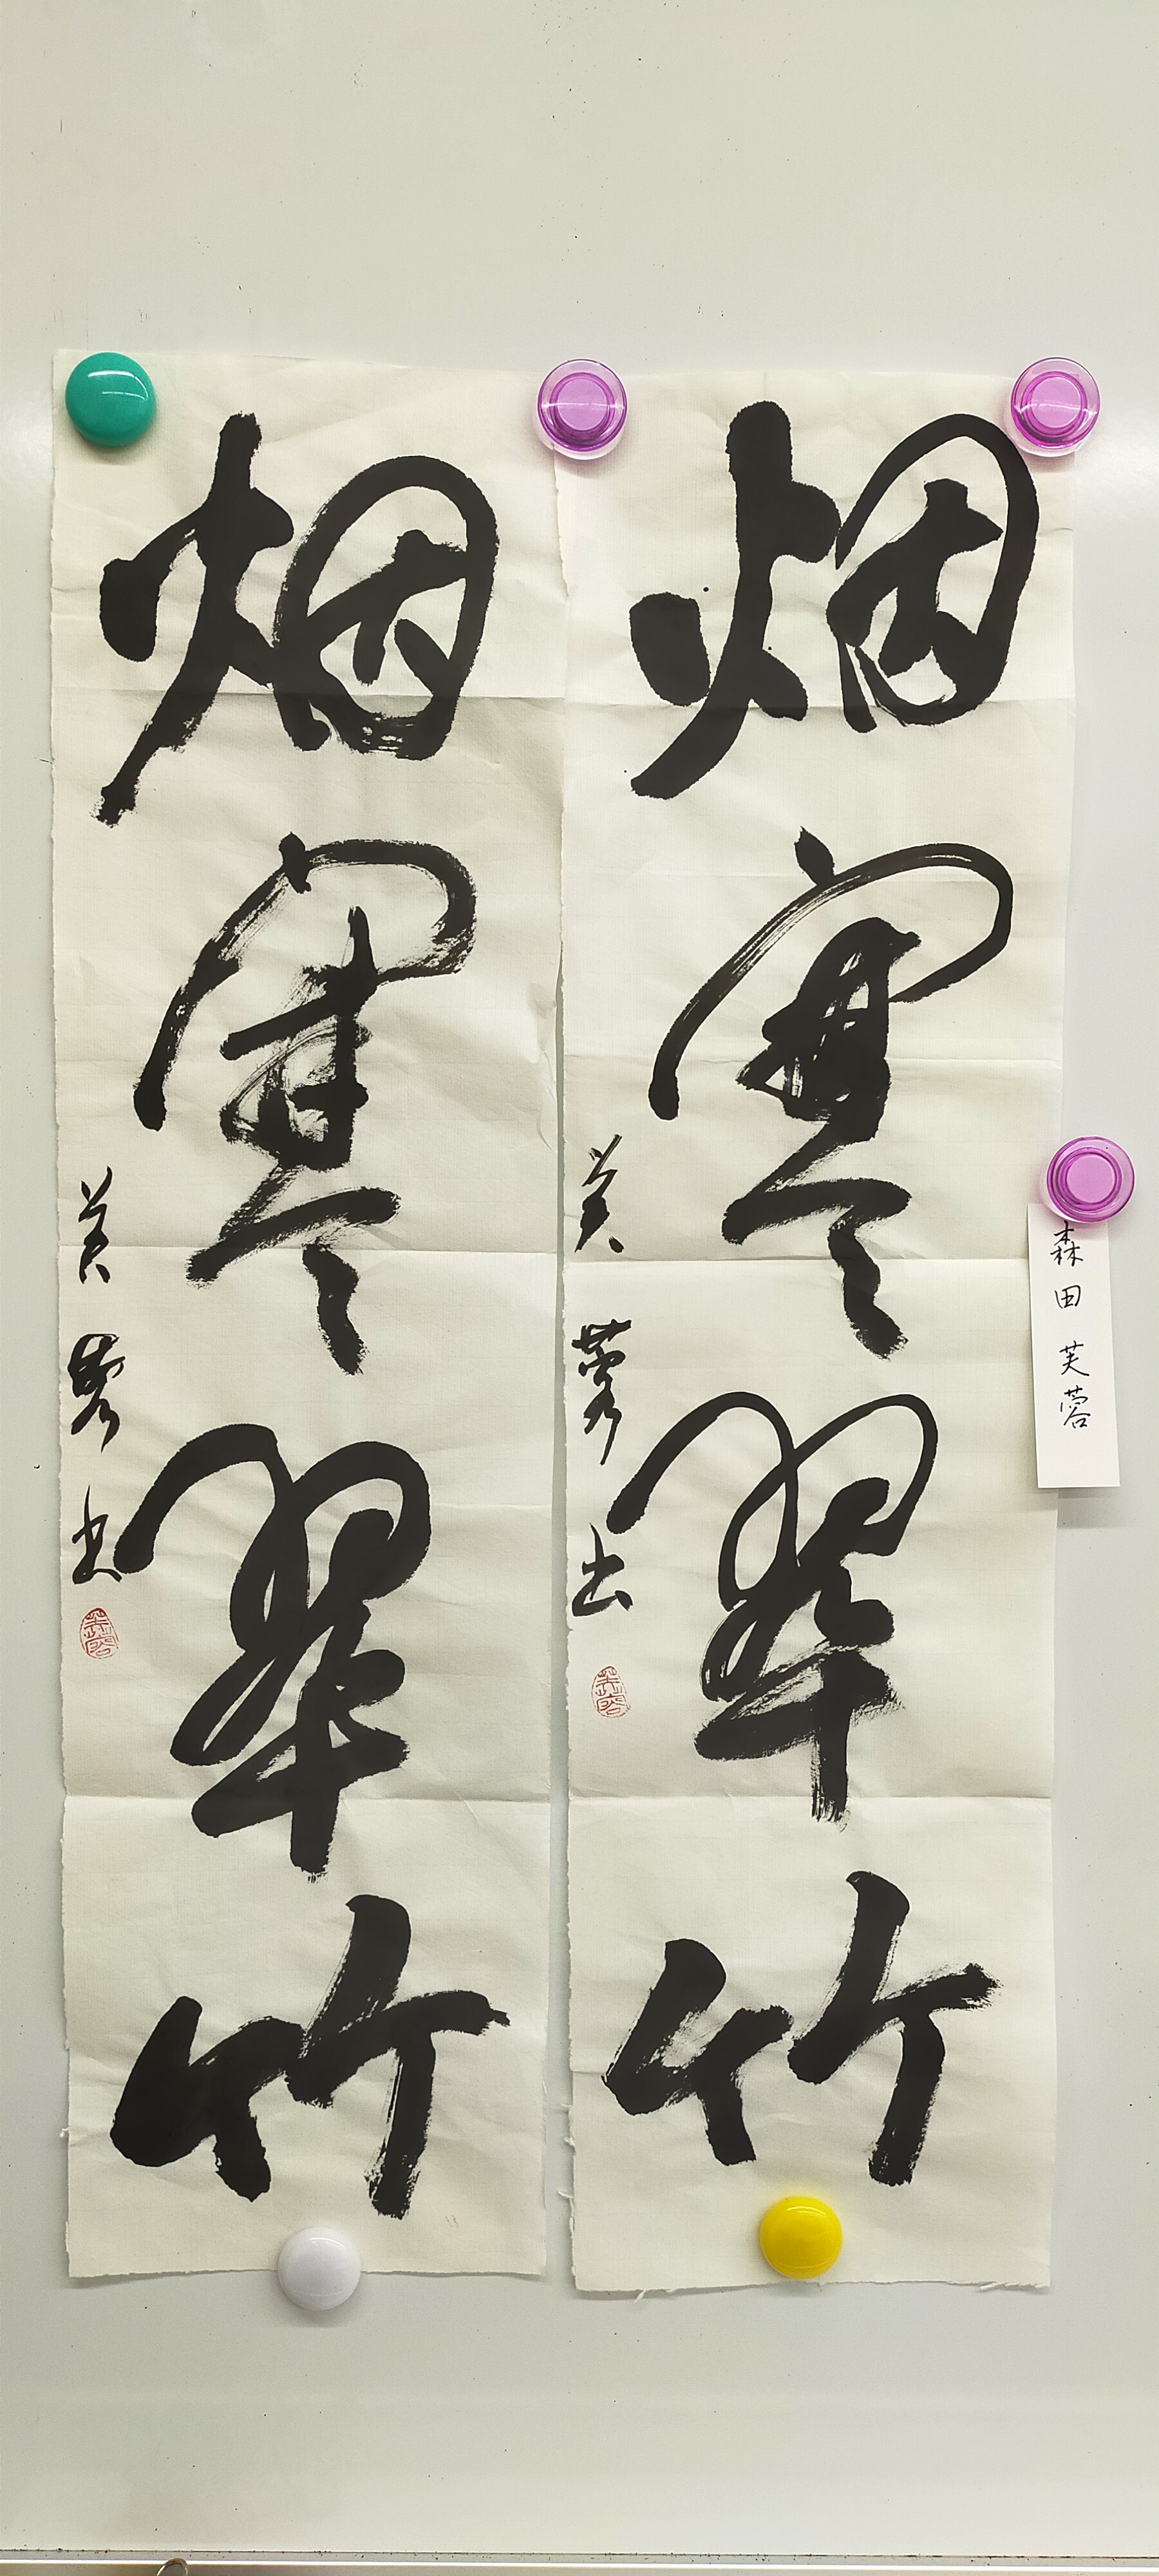 烟寒翠竹
芙蓉書
芙蓉
烟寒翠竹
芙蓉書
芙蓉
森田芙蓉